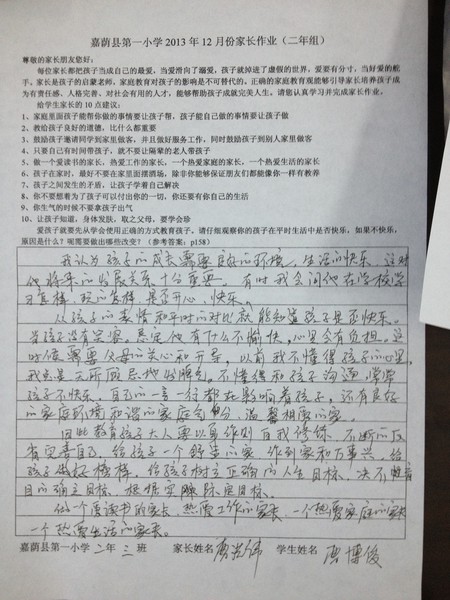 嘉荫县第一小学 2013 年 12 月份家长作业（二年组）
尊敬的家长朋友您好：
每位家长都把孩子当成自己的最爱，当爱滑向了溺爱，孩子就掉进了虚假的世界，爱要有分寸，当好爱的舵
手，家长是孩子的启蒙老师，家庭教育对孩子的影响是不可替代的。正确的家庭教育观能够引导家长培养孩子成
为有责任感、人格完善、对社会有用的人才，能够帮助孩子成就完美人生，请您认真学习并完成家长作业，
给学生家长的 10 点建议：
1、家庭里面孩子能帮你做的事情要让孩子帮，孩子能自己做的事情要让孩子做
2、教给孩子良好的道德，比什么都重要
3、鼓励孩子邀请同学到家里做客，并且做好服务工作，同时鼓励孩子到别人家里做客
4、只要自己有时间带孩子，就不要让隔辈的老人带孩子
5、做一个爱读书的家长，热爱工作的家长，一个热爱家庭的家长，一个热爱生活的家长
6、孩子在家时，最好不要在家里面摆酒场，除非你能够保证朋友们都能像你一样有教养
7、孩子之间发生的矛盾，让孩子学着自己解决
8、你不要想着为了孩子可以付出你的一切，你还要有你自己的生活
9、你生气的时候不要拿孩子出气
10、让孩子知道，身体发肤，取之父母，要学会珍
爱孩子就要先从学会使用正确的方式教育孩子。请仔细观察你的孩子在平时生活中是否快乐，如果不快乐，
原因是什么？呢需要做出哪些改变？（参考答案：p158）
我认为孩子的成长需要良好的环境，生活的快乐，这对
他将来的发展关系十分重要。有时我会问他在学校学
习怎样，玩的怎样，是否开心、快乐。
从孩子的表情和平时的对比就能知道孩子是否快乐。
当孩子没有笑容。肯定他有什么不愉快，心里会有负担。这
时候需要父母的关心和开导，以前我不懂得孩子的心里，
我总是无所顾忌地发脾气。不懂得和孩子沟通，常常
孩子不快乐，自己的一言一行都在影响着孩子，还有良好
的家庭环境和谐的家庭气氛，温馨相爱的家。
因此教育孩子大人要以身作则自我修炼，不断的反
省完善自己，给孩子一个舒适的家，作到家和万事兴，给
孩子做好榜样，给孩子树立正确的人生目标，决不
目的确立目标，根据实际定目标。
做一个爱读书的家长，热爱工作的家长，一个热爱家庭的家长
一个热爱生活的家长。
嘉荫县第一小学 二年 三 班 家长姓名 学生姓名 博俊